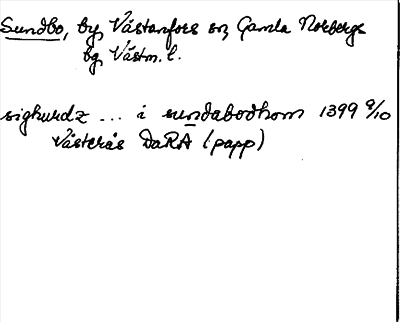 Sundbo, by, Västanfors sn, Gamla Norbergs
bg, Västm. l.
sighurdz ... i sundabodhom 1399 9/10
Västerås DaRA (papp)